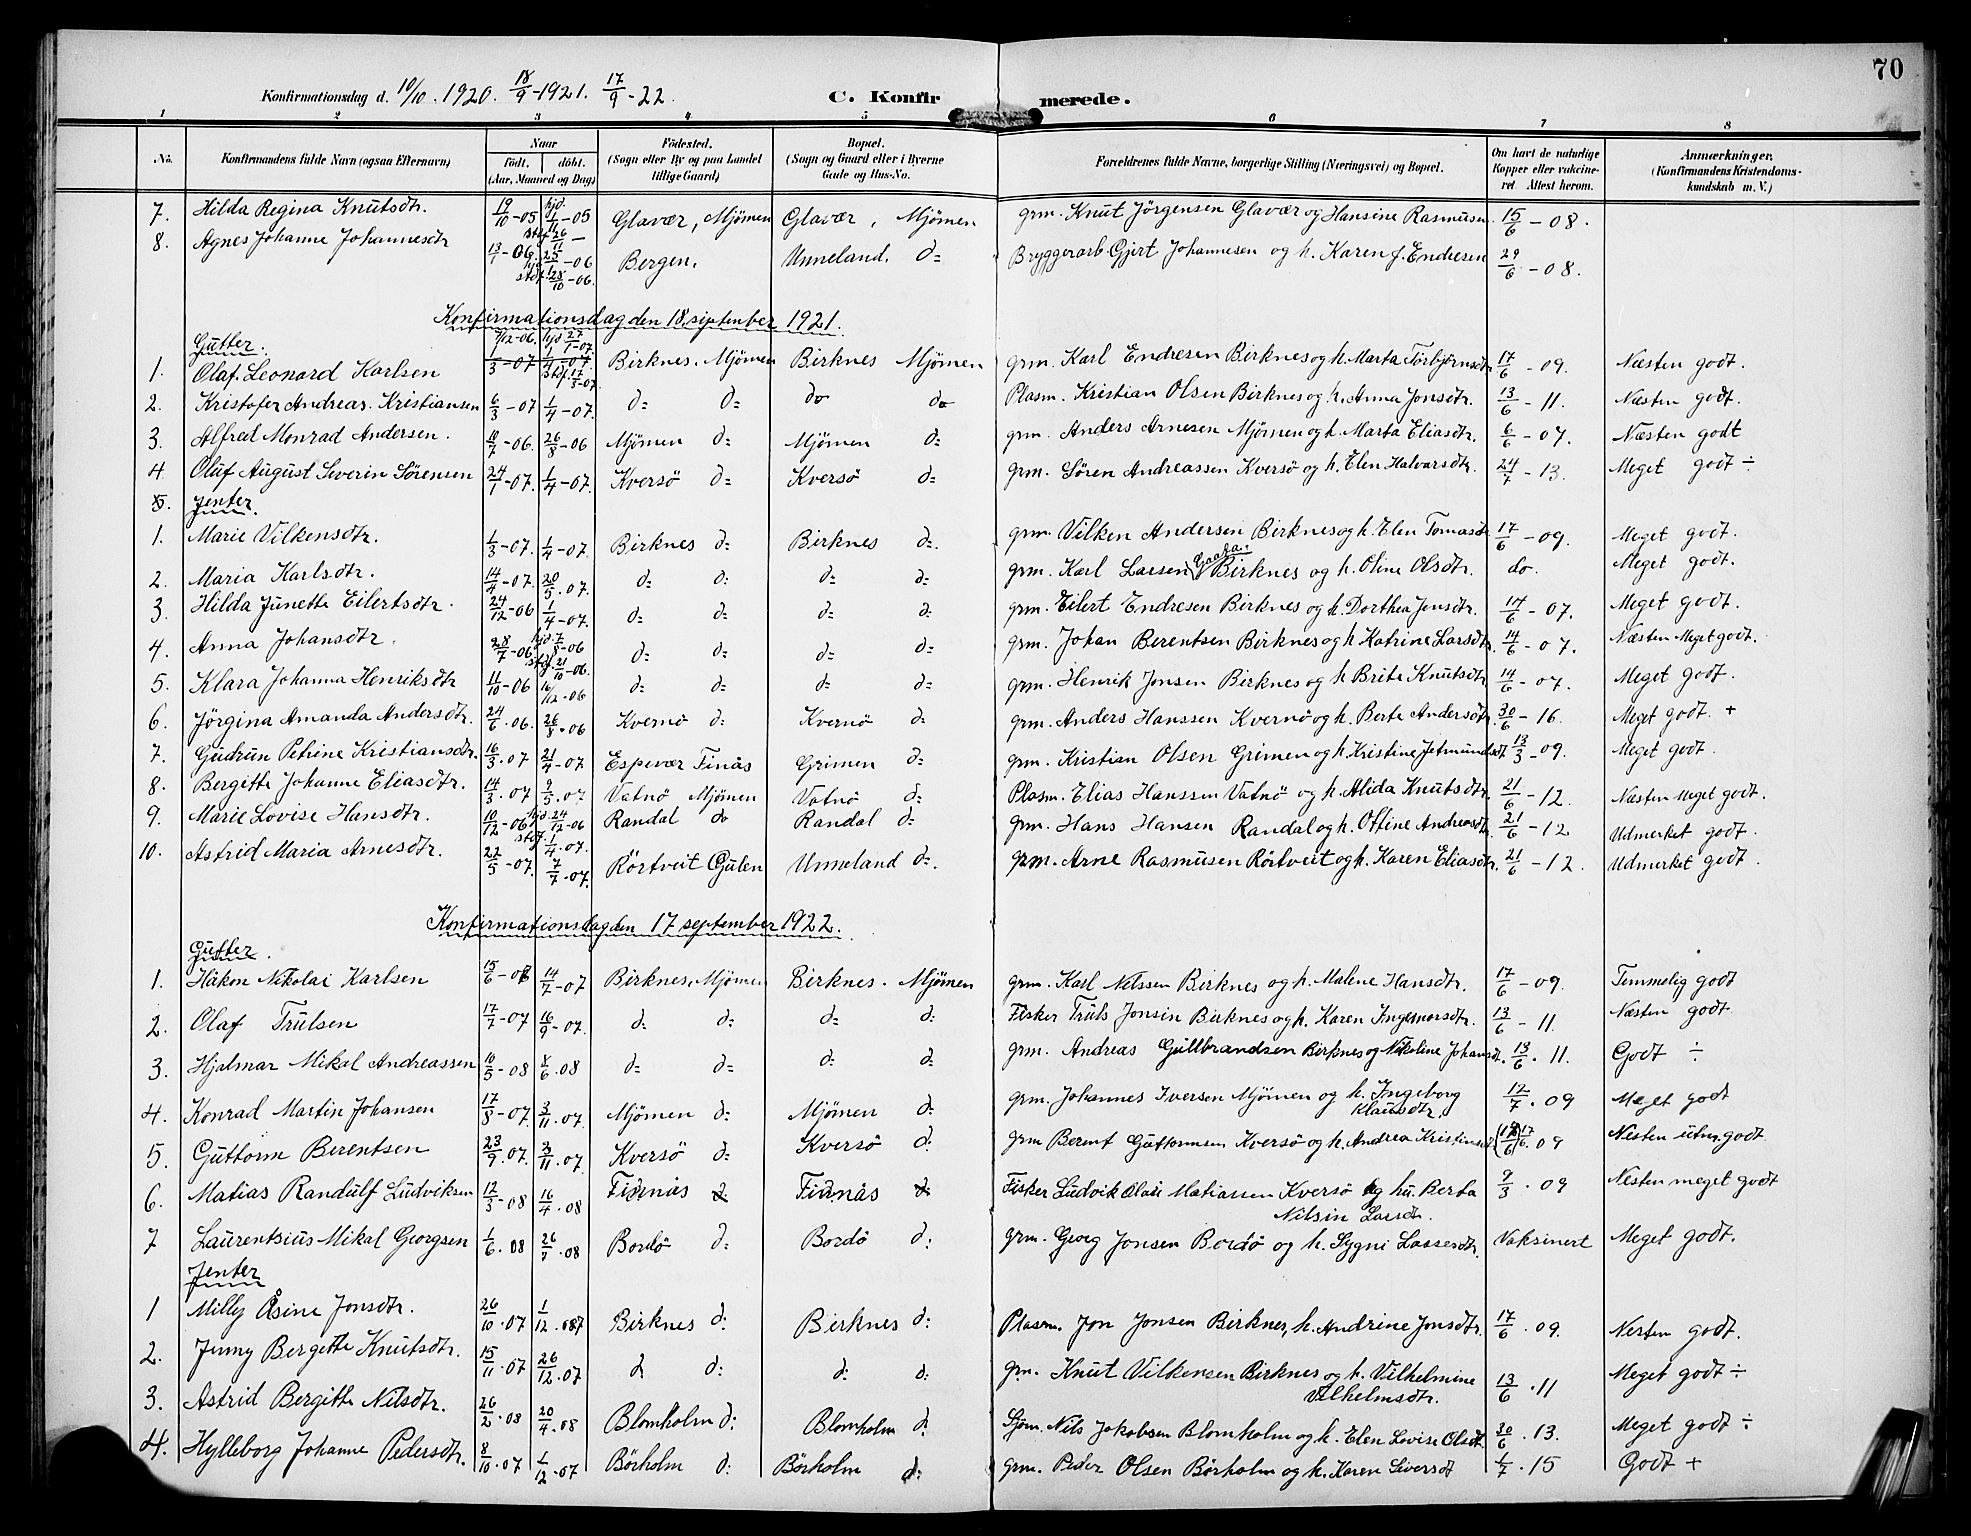 70
Konfirmationsdag d. 10/10. 1920. 18/9-1921. 17/9-22.
C. Konfirmerede.
1 2 3 4 5 6 7 8
No. Konfirmandens fulde Navn (ogsaa Efternavn) Naar født. døbt. (Aar, Maaned og Dag) Fødested. (Sogn eller By og paa Landet tillige Gaard) Bopæl. (Sogn og Gaard eller i Byerne Gade og Hus-No. Forældrenes fulde Navne, borgerlige Stilling (Næringsvei) og Bopæl. Om havt de naturlige Kopper eller vakcineret Attest herom. Anmærkninger. (Konfirmandens Kristendomskundskab m. V.)
7. Hilda Regina Knutsdtr. 19/10-05 hjd. 1/11-05 stdf. 26/11- Glavær, Mjömen Glavær, Mjömen grm. Knut Jörgensen Glavær og Hansine Rasmusen 15/6-08.
8. Agnes Johanne Johannesdtr 13/1-06. hjd 25/1-06 stdf. 28/10-06. Bergen. Unneland. d= Bryggerarb Gjert Johannesen og h. Karen J. Endresen 29/6-08.
Konfirmationsdag den 18. september 1921.
Gutter.
1. Olaf. Leonard Karlsen 7/12-06. 1/3-07 hjd 27/1-07. 1/4-07. stdf. 17/3-07. Birknes. Mjömen Birknes Mjömen grm. Karl Endresen Birknes og h. Marta Torbjörnsdtr 17/6-09. Næsten godt.
2. Kristofer Andreas. Kristiansen 6/3-07 1/4-07. d= d= do do Plasm. Kristian Olsen Birknes og h. Anna Jonsdtr. 13/6-11. Næsten godt.
3. Alfred Monrad Andersen. 10/7-06. 26/8-06 Mjömen d= Mjömen d= grm. Anders Arnesen Mjömen og h. Marta Eliasdtr. 6/6-07. Næsten godt
4. Oluf August Severin Sörensen 24/1-07. 1/4-07. Kversö d= Kversö d= grm. Sören Andreassen Kversö og h. Elen Halvarsdtr. 24/7-13. Meget godt ÷
5. Jenter.
1. Marie Vilkensdtr. 1/3-07. 1/4-07. Birknes d= Birknes d=. grm. Vilken Andersen Birknes og h. Elen Tomasdtr 17/6-09. Meget godt.
2. Maria Karlsdtr. 14/4-07. 20/5.07. d= d= d= d= grm. Karl Larsen Birknes og h. Oline Olsdtr. do. Meget godt.
3. Hilda Junette Eilertsdtr. 24/12-06 1/4-07. d= d= d= d= grm. Eilert Endresen Birknes og h. Dorthea Jonsdtr. 14/6-07. Meget godt.
4. Anna Johansdtr. 28/7-06 hjd. 7/8-06 stdf. 21/10-06. d= d= d= d= grm. Johan Berentsen Birknes og h Katrine Larsdtr. 14/6-07. Næsten Meget godt.
5. Klara Johanna Henriksdtr 11/10-06 16/12.06 d= d= d= d= grm. Henrik Jonsen Birknes og h Brite Knutsdtr. 14/6-07. Meget godt.
6. Jörgina Amanda Andersdtr. 24/6.06. 26/8.06 Kvernö d= Kvernö d= grm. Anders Hanssen Kvernö og h. Berte Andersdtr. 30/6-16. Meget godt. +
7. Gudrun Petrine Kristiansdtr. 16/3.07 21/4-07 Espevær Finås Grimen d= grm. Kristian Olsen Grimen og h Kristine Jetmundsdt 13/3-09. Meget godt.
8. Bergitte Johanne Eliasdtr. 14/3.07 9/5.07 Vatnö Mjömen Vatnö d= Plasm. Elias Hanssen Vatnö og h. Alida Knutsdtr. 21/6-12. Næsten Meget godt.
9. Marie Lovise Hansdtr. 10/12-06 hjd. 24/12-06 stdf. 1/4-07. Randal do Randal d= grm. Hans Hansen Randal og h. Ottine Andreasdtr. 21/6-12 Udmerket godt.
10. Astrid Maria Arnesdtr. 22/5-07. 7/7-07. Rörtveit Gulen Unneland d=. grm. Arne Rasmusen Rörtveit og h. Karen Eliasdtr. 21/6-12. Udmerket godt.
Konfirmationsdag den 17 september 1922.
Gutter.
1. Håkon Nikolai Karlsen 15/6-07 14/7-07 Birknes, Mjömen Birknes. Mjömen grm. Karl Nilssen Birknes og h. Malene Hansdtr. 17/6-09. Temmelig godt
2. Olaf Trulsen 17/7-07 16/9-07. d= d= d= d= Fisker Truls Jonsen Birknes og h. Karen Ingemarsdtr. 13/6-11. Næsten godt
3. Hjalmar Mikal Andreassen 10/5-08 8/6.08 d= d= d: d= grm. Andreas Gullbrandsen Birknes og Nikoline Johansdt. 13/6.11. Godt ÷
4. Konrad Martin Johansen 17/8-07. 3/11.07. Mjömen d= Mjömen d= grm. Johannes Iversen Mjömen og h. Ingeborg Klausdtr. 17/7.09 Meget godt
5. Guttorm Berentsen 23/9.07. 3/11.07 Kversö d= Kversö d: grm Berent Guttormsen Kversö og h. Andrea Kristinsdt 17/6.09 Nesten utm. godt
6. Matias Randulf Ludviksen 12/3-08 16/4.08 Fidnås d: Fidnås d: Fisker Ludvik Olai Matiassen Kversö og hu. Berta Nilsin Larsdt. 9/3.09 Nesten meget godt
7 Laurentsius Mikal Georgsen 1/6.08 26/7.08 Bordö d: Bordö d: grm. Georg Jonsen Bordö og h. Sygni Lassesdtr. Vaksinert Meget godt.
Jenter
1 Milly Åsine Jonsdtr. 26/10.07 1/12.07 Birknes d: Birknes d: Plasm. Jon Jonsen Birknes, h. Andrine Jonsdtr. 17/6.09. Nesten godt.
2. Jenny Bergette Knutsdtr. 15/11.07 26/12.07 d. d: d: d: grm. Knut Vilkensen Birknes og h. Vilhelmine Vilhelmsdtr. 13/6.11 Meget godt ÷
3. Astrid Bergitte Nilsdtr. 26/2.08 20/4.08 Blomholm d: Blomholm d: Sjöm. Nils Jakobsen Blomholm og h. Elen Lovise Olsdt. 30/6.13. Meget godt ÷
4. Hylleborg Johanne Pedersdtr. 8/10.07 1/12.07 Börholm d: Börholm d: grm. Peder Olsen Börholm og h. Karen Siversdt 1/7.15 Godt +